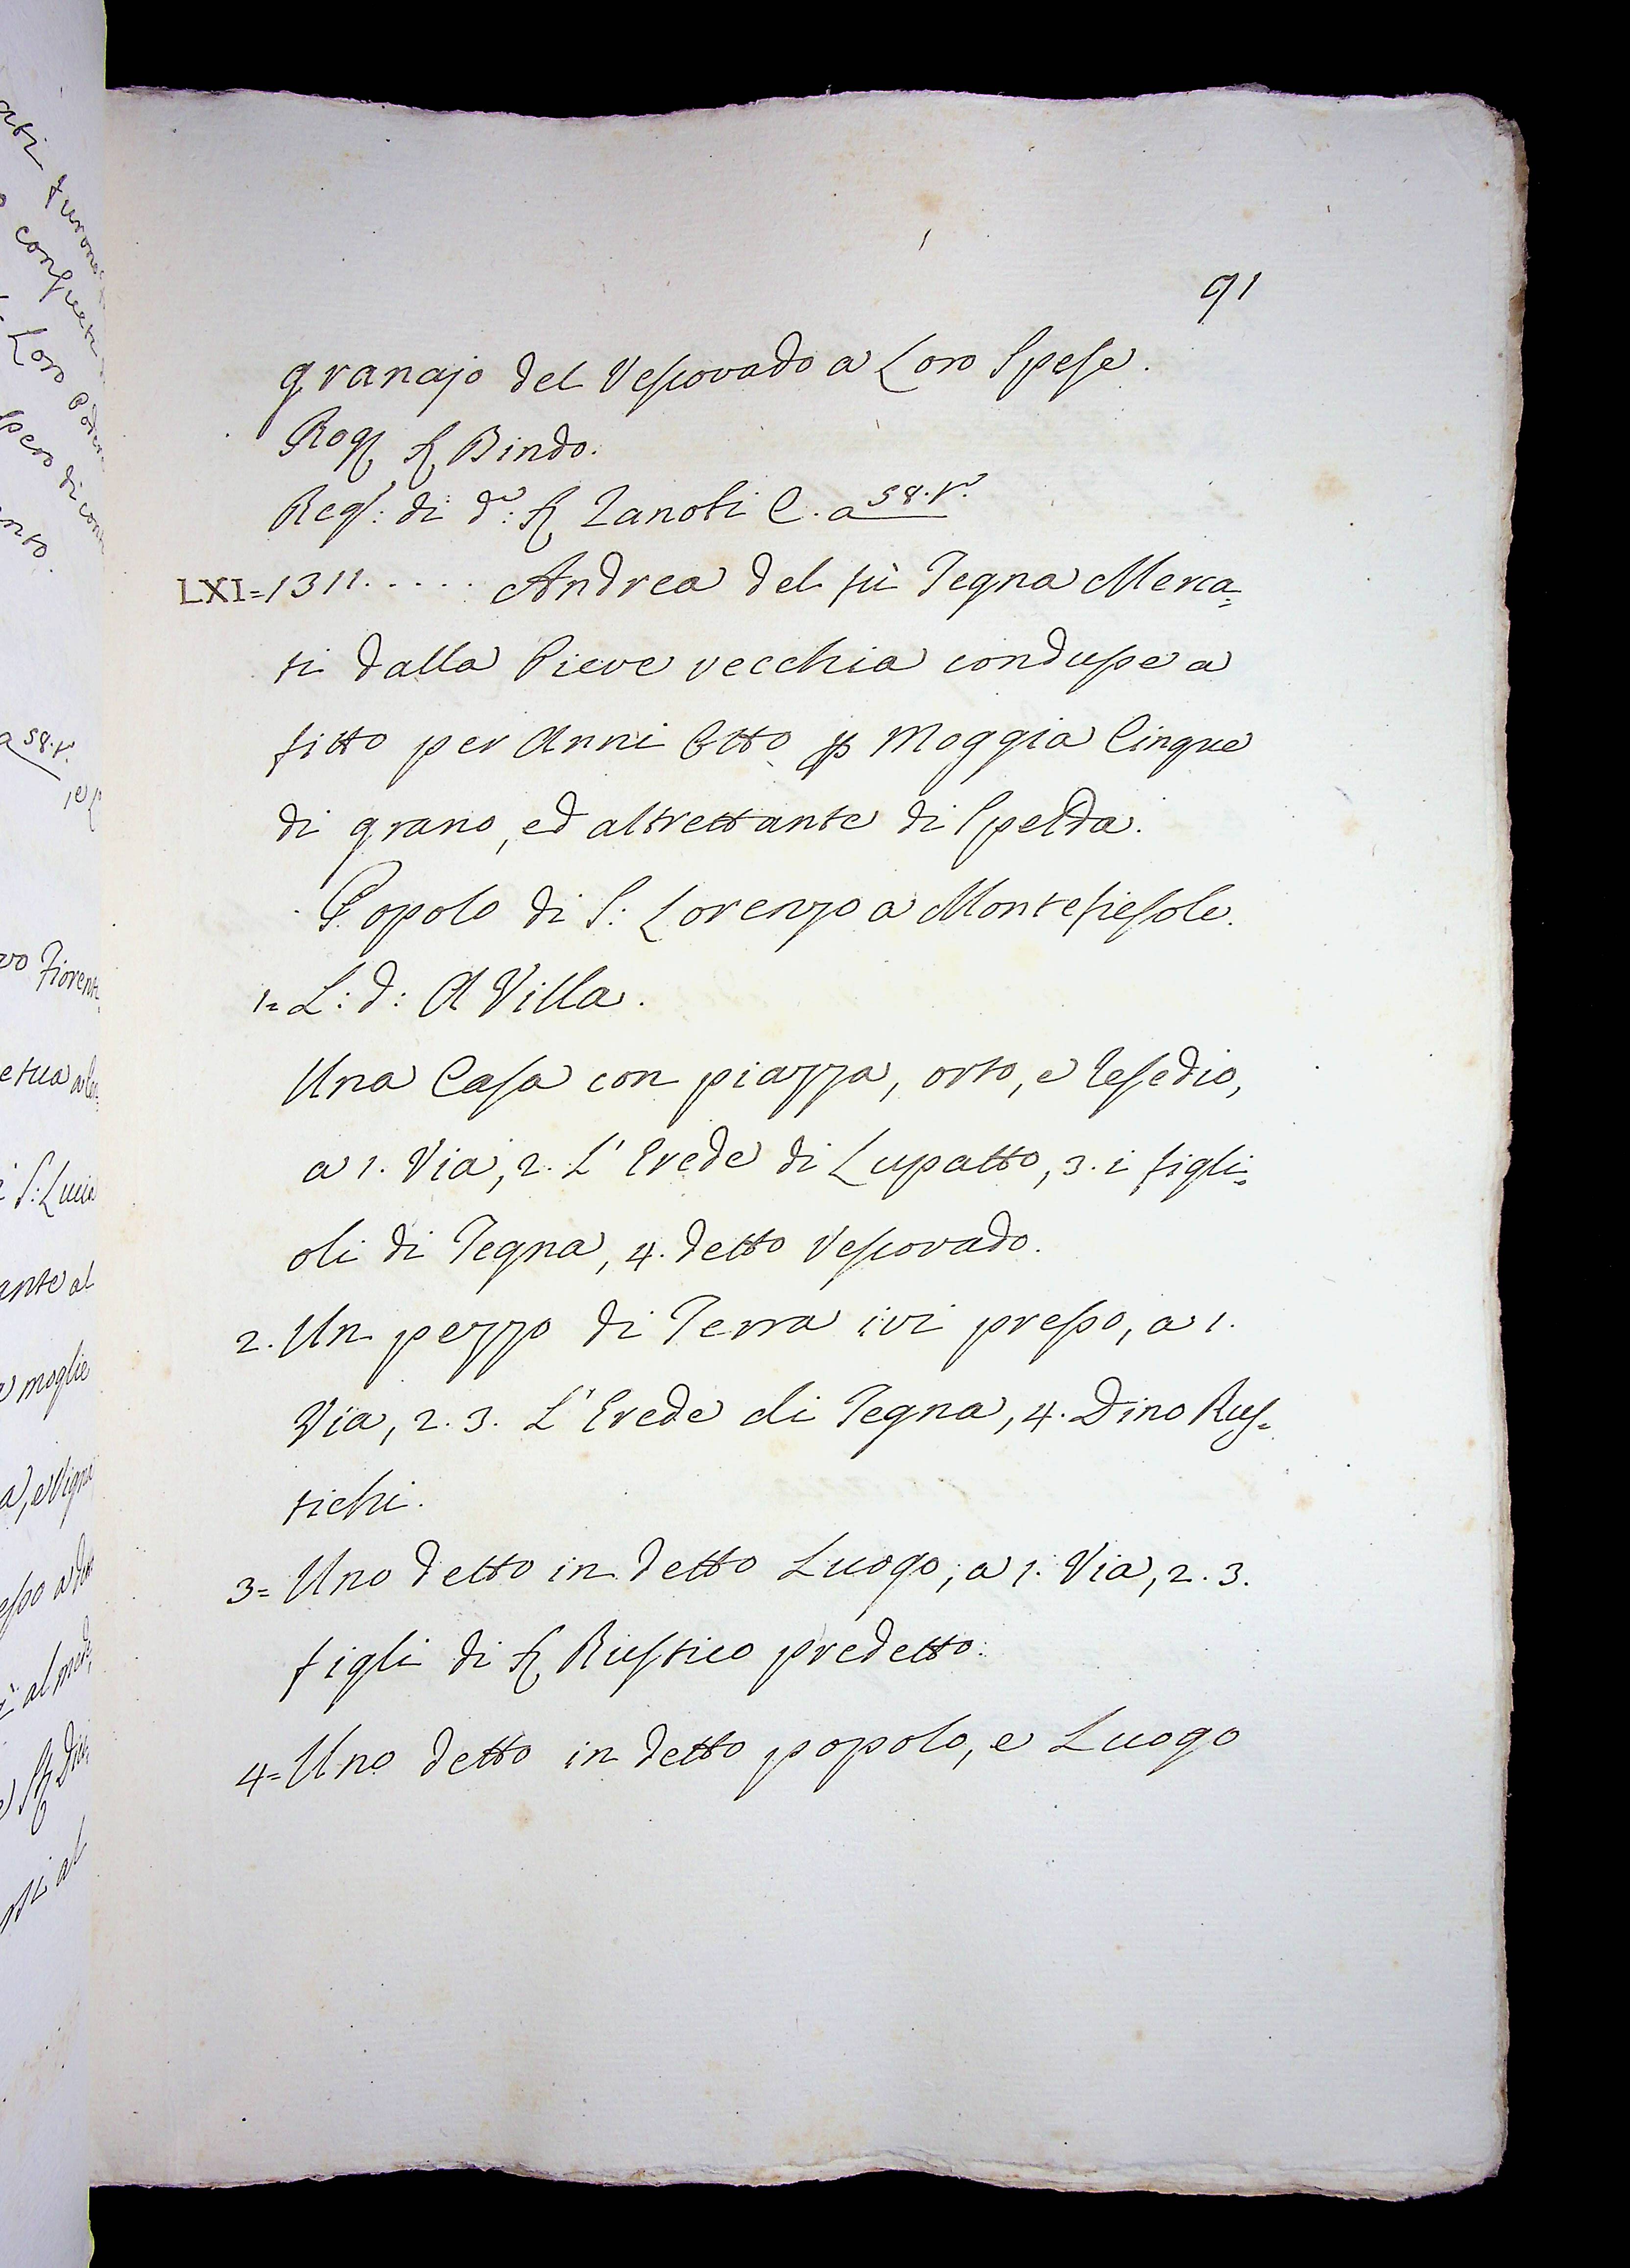 91
granajo del Vescovado a Loro Spese.
Rog. Ser Bindo.
Reg.: di d.o: Ser Zanobi C. a 58. r.
LXI = 1311. . . . . Andrea del fù Tegna Merca=
ti dalla Pieve vecchia condusse a
fitto per Anni Otto p Moggia Cinque
di grano, ed altrettante di Spelda.
Popolo di S: Lorenzo a Montefiesole.
1= L: d: A Villa.
Una Casa con piazza, orto, e resedio,
a 1. Via, 2. L'Erede di Lupatto, 3. i figli=
oli di Tegna, 4. detto Vescovado.
2. Un pezzo di Terra ivi presso, a 1.
Via, 2. 3. L'Erede di Tegna, 4. Dino Rus=
tichi.
3= Uno detto in detto Luogo; a 1. Via, 2. 3.
figli di Ser Rustico predetto.
4= Uno detto in detto popolo, e Luogo